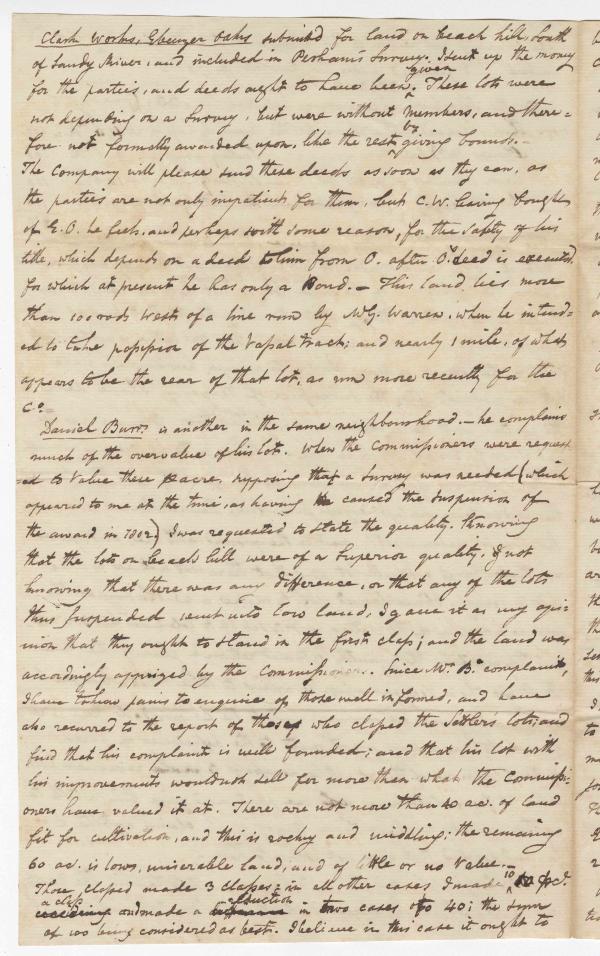 Clark Works, Ebenezer Oakes submitted for land on beach hill, South
of Sandy River, and included in Pecham's Survey. I sent up the money
for the parties, and deeds ought to have been given. These lots were
not depending on a Survey, but were without numbers, and there=
fore not formally awarded upon, like the rest by giving bounds.-
The Company will please send these deeds as soon as they can, as
the parties are not only impatient for them, but C.W. having bought
of E.O. he feels, and perhaps with some reason, for the safety of his
title, which depends on a deed to him from O. after O's deed is executed,
for which at present he has only a Bond.- This land, lies more
than 100 rods West of a line run by Wm G. Warren, when he intend=
ed to take possession of the Vassal tract; and nearly 1 mile, of what
appears to be the rear of that lot, as run more recently for the
Co.
Daniel Burrs is another in the same neighbourhood.- he complains
much of the overvalue of his lot. When the Commissioners were request
=ed to Value these pr acre, supposing that a Survey was needed (which
appeared to me at the time, as having caused the Suspension of
the award in 1802) I was requested to state the quality. Knowing
that the lots on beach hill were of a Superior quality, & not
knowing that there was any difference, or that any of the lots
thus Suspended went into low land, I gave it as my opi=
nion that they ought to stand in the first class; and the land was
accordingly apprized by the Commissioners. Since Mr. B's complaint,
I have taken pains to enquire of those well informed, and have
also recurred to the report of those who classed the Settler's lots; and
find that his complaint is well founded; and that his lot with
his improvements would not sell for more than what the Commissi=
oners have valued it at. There are not more than 40 ac. of land
fit for cultivation, and this is rocky and middling: the remaining
60 ac. is low, miserable land, and of little or no Value.-
Those, classed made 3 classes: in all other cases I made 10
a class and made a reduction in two cases to 40; the sum
of 100 being considered as best. I believe in this case it ought to